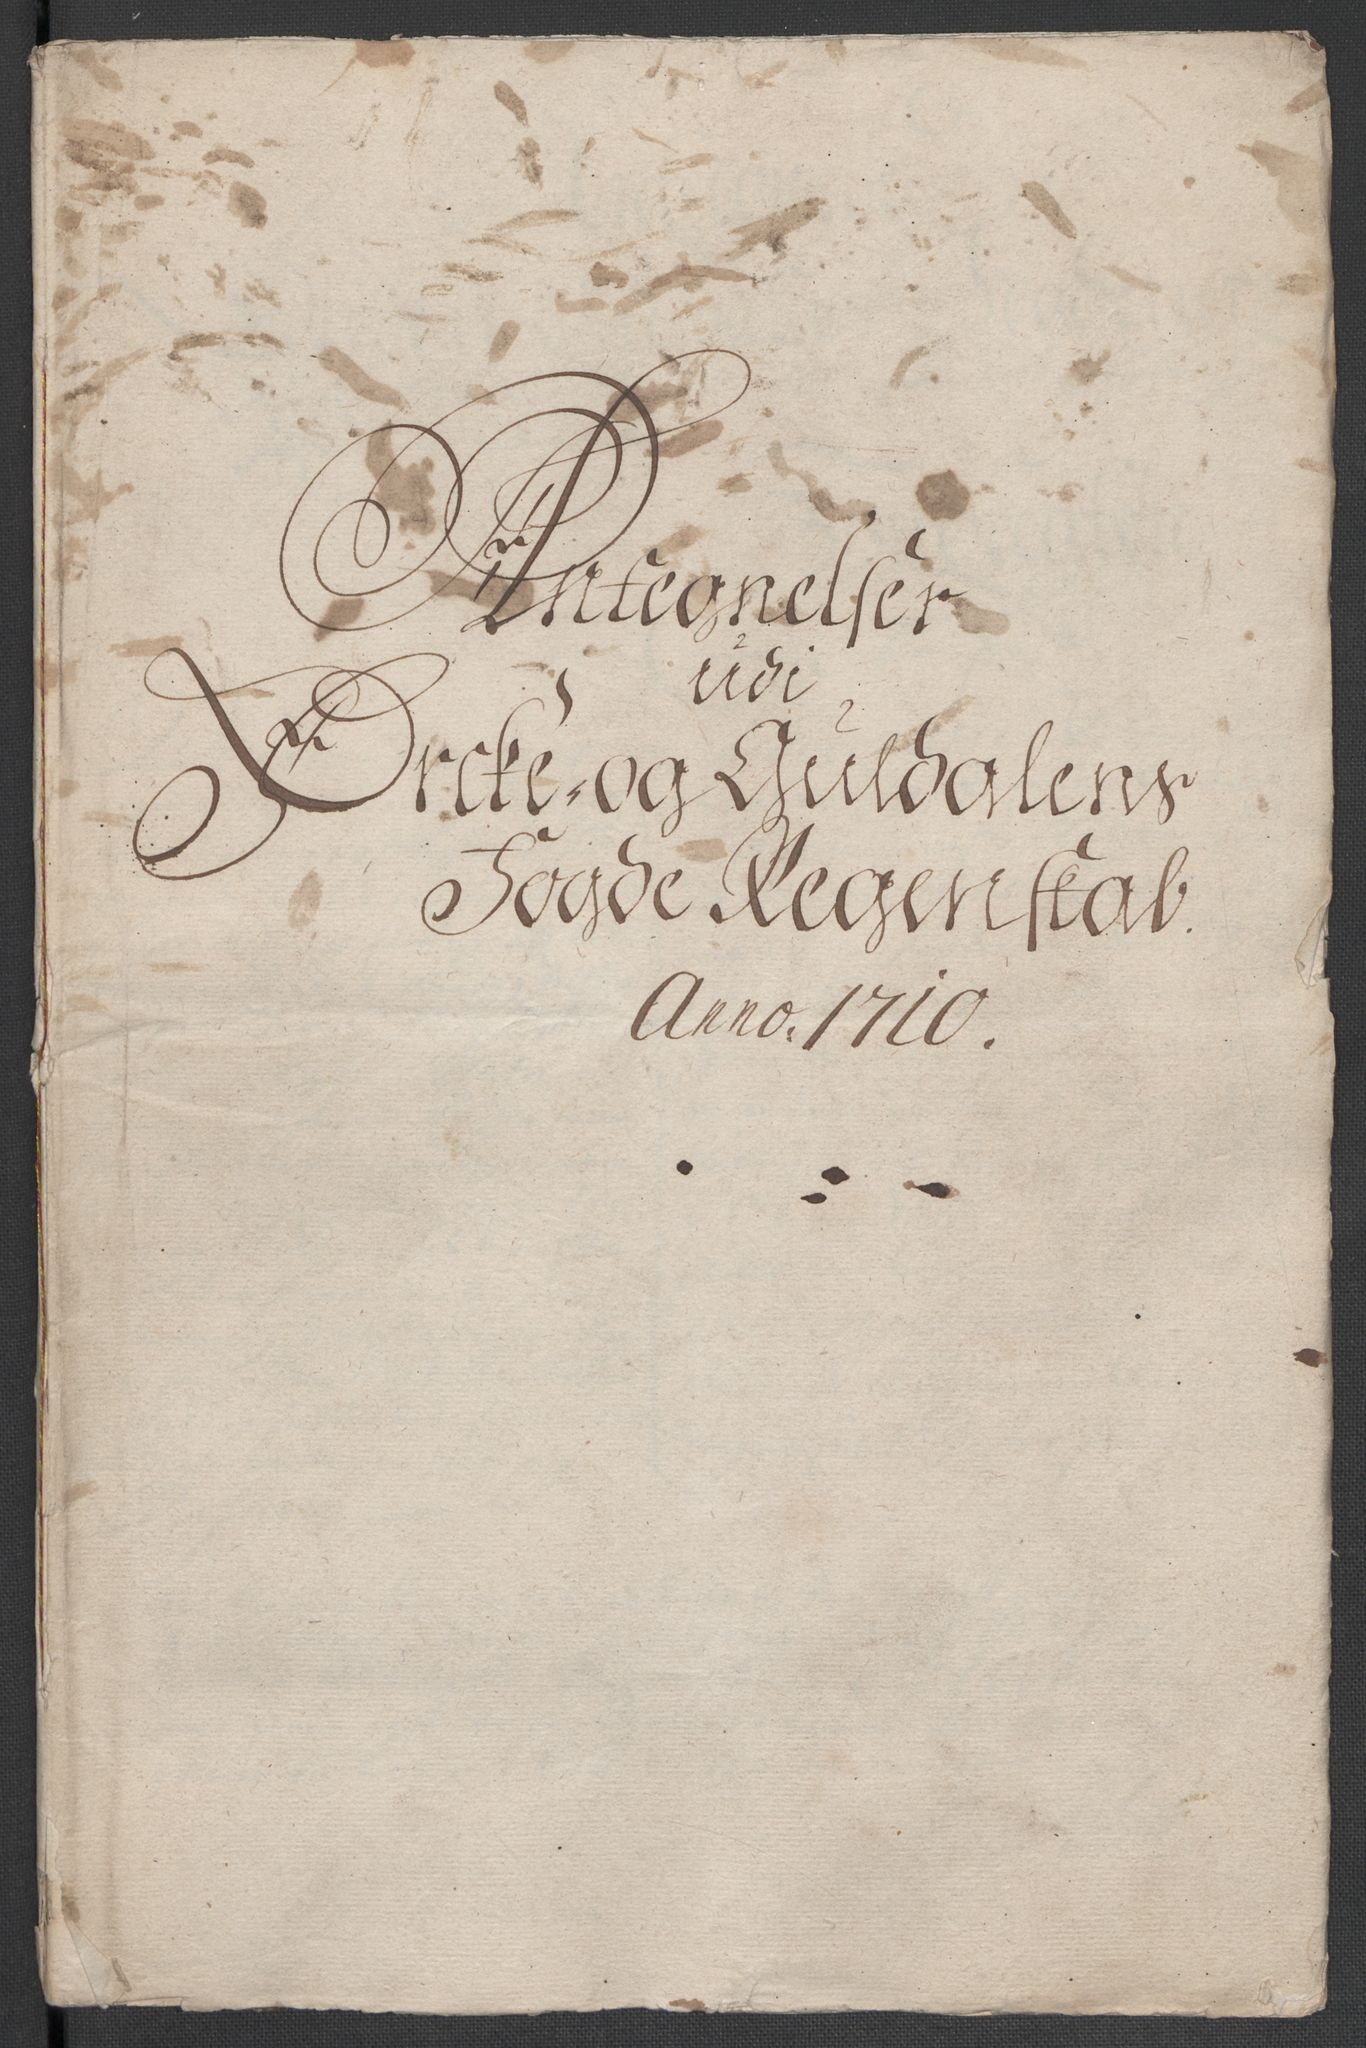 Antegnelser
udi
Orcke, og Guldalens
Fogde Regenskab.
Anno. 1710.